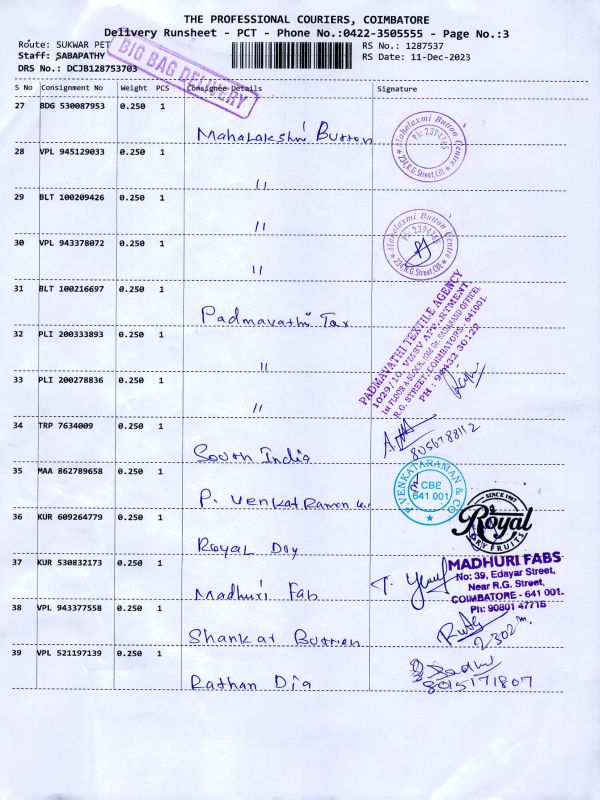 THE PROFESSIONAL COURIERS, COIMBATORE
Delivery Runsheet - PCT - Phone No.:0422-3505555 - Page No.:3
Route: SUKWAR PET
RS No.: 1287537
Staff: SABAPATHY
RS Date: 11-Dec-2023
DRS No.: DCJB128753703
BIG BAG DELIVERY
S No Consignment No Weight PCS Consignee Details Signature
27 BDG 530087953 0.250 1
Mahalakshmi Button
Mahalaxmi Button Centre
Ph: 2394765
234, R.G. Street, CBE
28 VPL 945129033 0.250 1
''
29 BLT 100209426 0.250 1
''
Mahalaxmi Button Centre
234, R.G. Street, CBE
30 VPL 943378072 0.250 1
''
31 BLT 100216697 0.250 1
Padmavathi Tex
PADMAVATHI TEXTILE AGENCY
1029/10, VKSV APPARTMENT
R.G. STREET, COIMBATORE, 641001.
32 PLI 200333893 0.250 1
''
33 PLI 200278836 0.250 1
''
34 TRP 7634009 0.250 1
South India
35 MAA 862789658 0.250 1
P. Venkat Raman &
P.VENKATARAMAN & CO
CBE
641 001
36 KUR 609264779 0.250 1
Royal Dry
SINCE 1987
Royal
DRY FRUITS
37 KUR 530832173 0.250 1
Madhuri Fab
MADHURI FABS
No: 39, Edayar Street,
Near R.G. Street,
COIMBATORE - 641 001.
Ph: 90801 47716
38 VPL 943377558 0.250 1
Shankar Button
39 VPL 521197139 0.250 1
Rathan Dia
8015171807